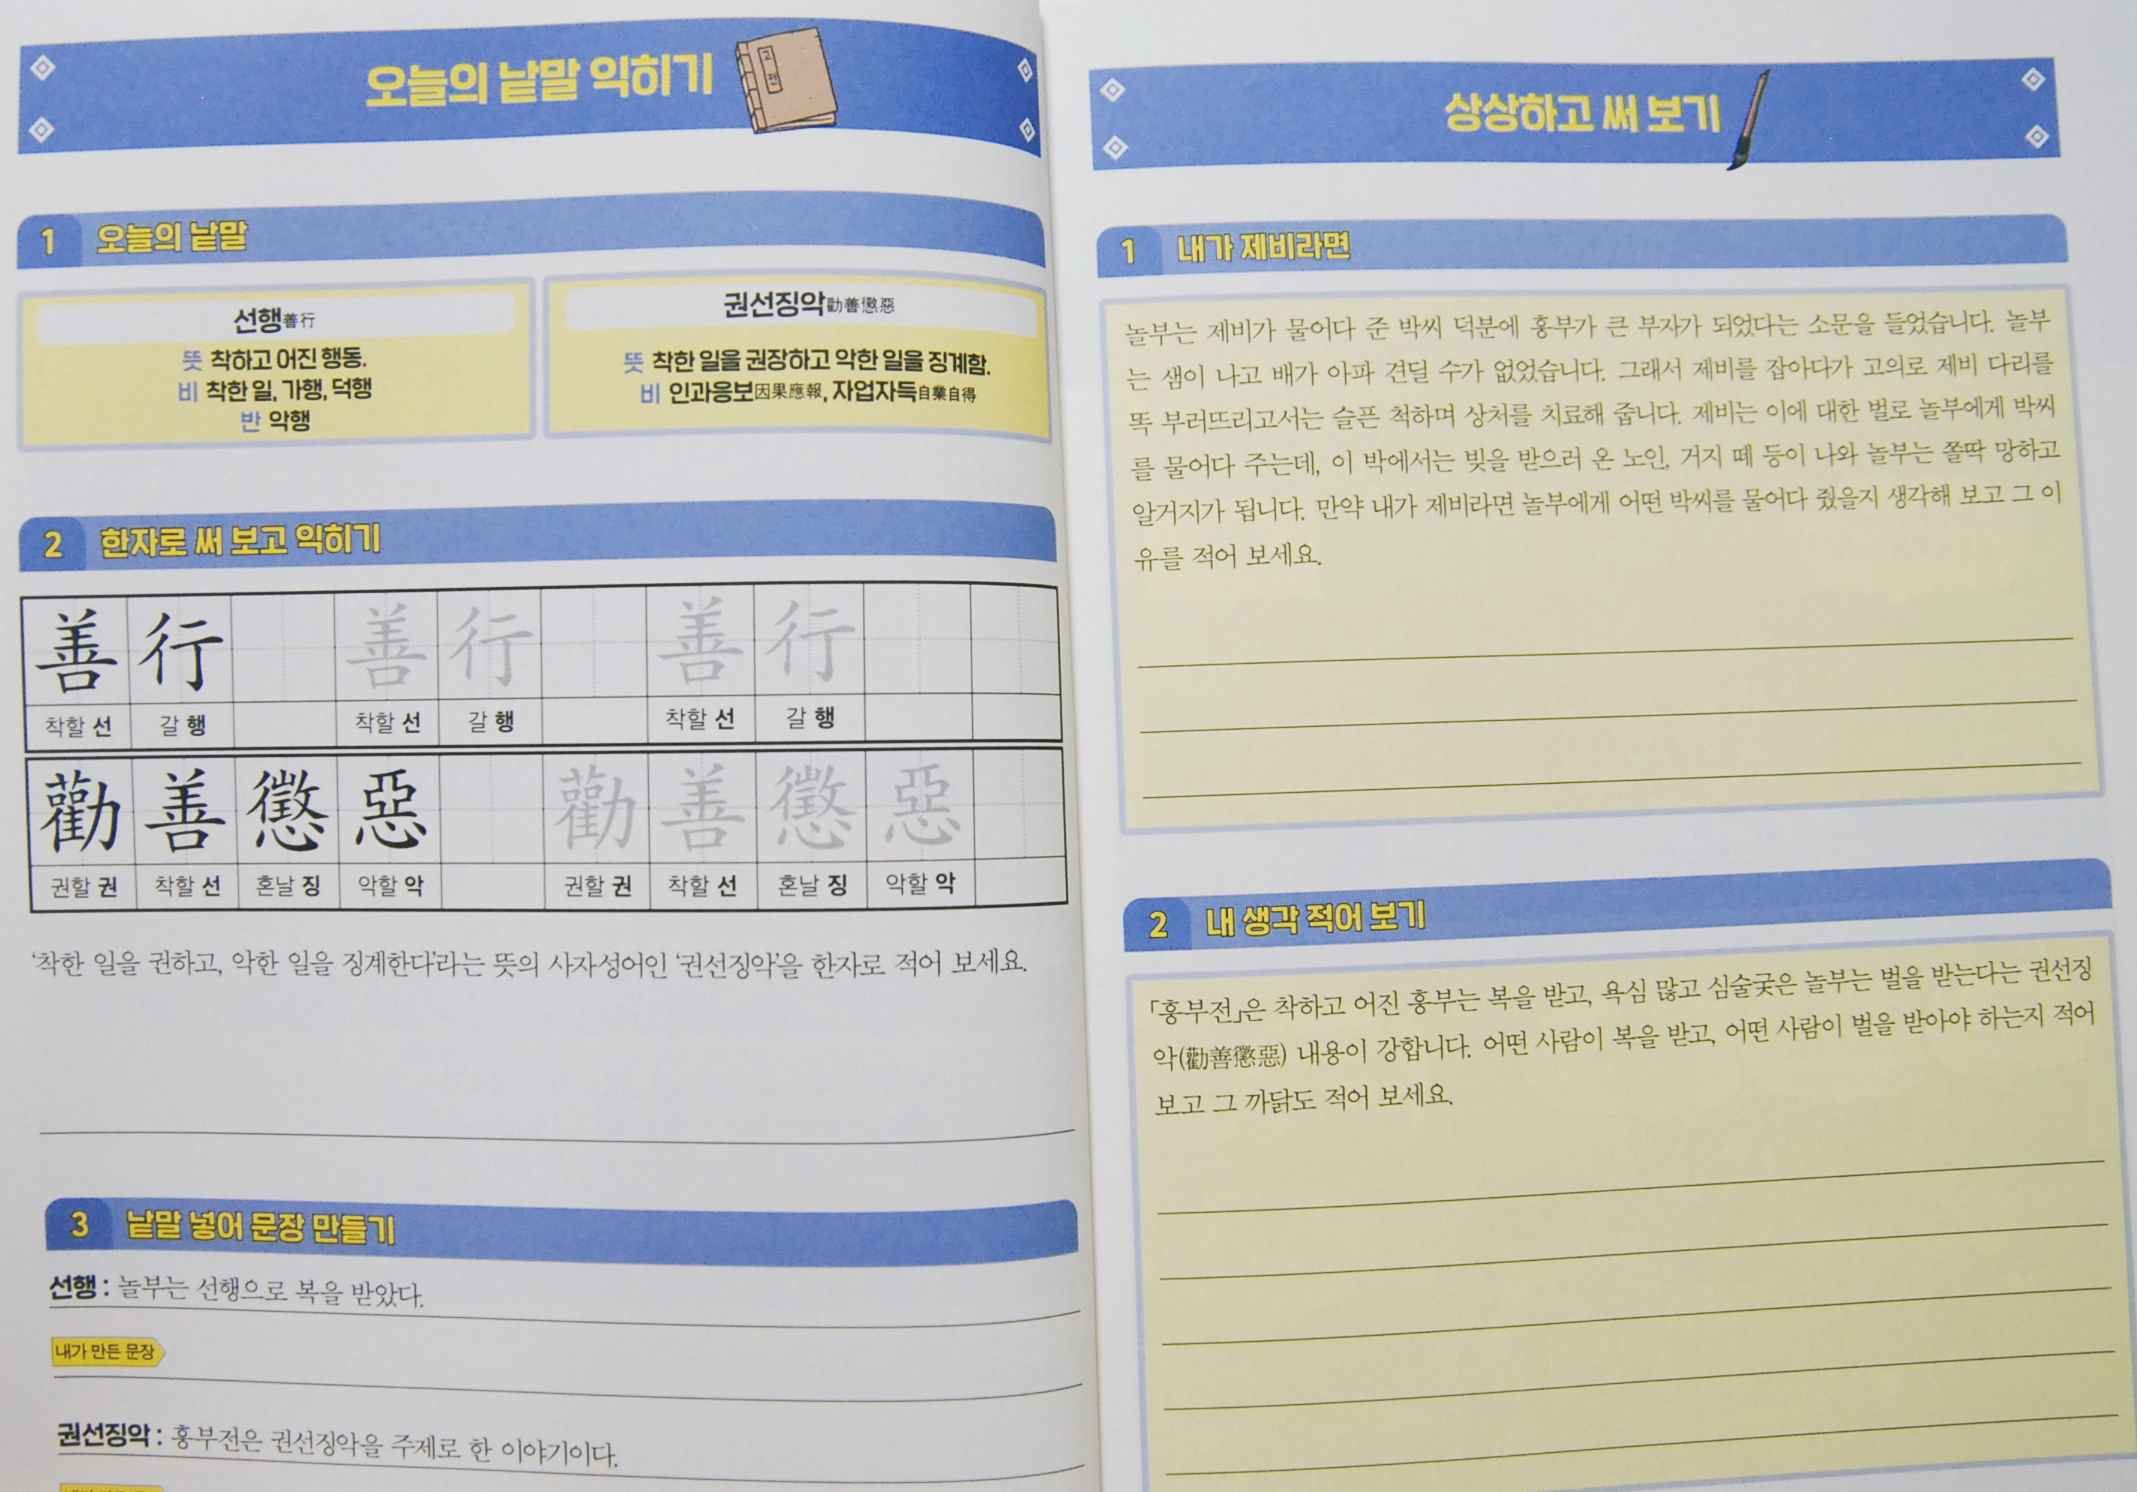 오늘의 낱말 익히기
고전
1 오늘의 낱말
선행善行
뜻 착하고 어진 행동.
비 착한 일, 가행, 덕행
반 악행
권선징악勸善懲惡
뜻 착한 일을 권장하고 악한 일을 징계함.
비 인과응보因果應報, 자업자득自業自得
2 한자로 써 보고 익히기
善 行 善 行 善 行
착할 선 갈 행 착할 선 갈 행 착할 선 갈 행
勸 善 懲 惡 勸 善 懲 惡
권할 권 착할 선 혼날 징 악할 악 권할 권 착할 선 혼날 징 악할 악
‘착한 일을 권하고, 악한 일을 징계한다’라는 뜻의 사자성어인 ‘권선징악’을 한자로 적어 보세요.
3 낱말 넣어 문장 만들기
선행 : 놀부는 선행으로 복을 받았다.
내가 만든 문장
권선징악 : 흥부전은 권선징악을 주제로 한 이야기이다.
상상하고 써 보기
1 내가 제비라면
놀부는 제비가 물어다 준 박씨 덕분에 흥부가 큰 부자가 되었다는 소문을 들었습니다. 놀부
는 샘이 나고 배가 아파 견딜 수가 없었습니다. 그래서 제비를 잡아다가 고의로 제비 다리를
똑 부러뜨리고서는 슬픈 척하며 상처를 치료해 줍니다. 제비는 이에 대한 벌로 놀부에게 박씨
를 물어다 주는데, 이 박에서는 빚을 받으러 온 노인, 거지 떼 등이 나와 놀부는 쫄딱 망하고
알거지가 됩니다. 만약 내가 제비라면 놀부에게 어떤 박씨를 물어다 줬을지 생각해 보고 그 이
유를 적어 보세요.
2 내 생각 적어 보기
「흥부전」은 착하고 어진 흥부는 복을 받고, 욕심 많고 심술궂은 놀부는 벌을 받는다는 권선징
악(勸善懲惡) 내용이 강합니다. 어떤 사람이 복을 받고, 어떤 사람이 벌을 받아야 하는지 적어
보고 그 까닭도 적어 보세요.